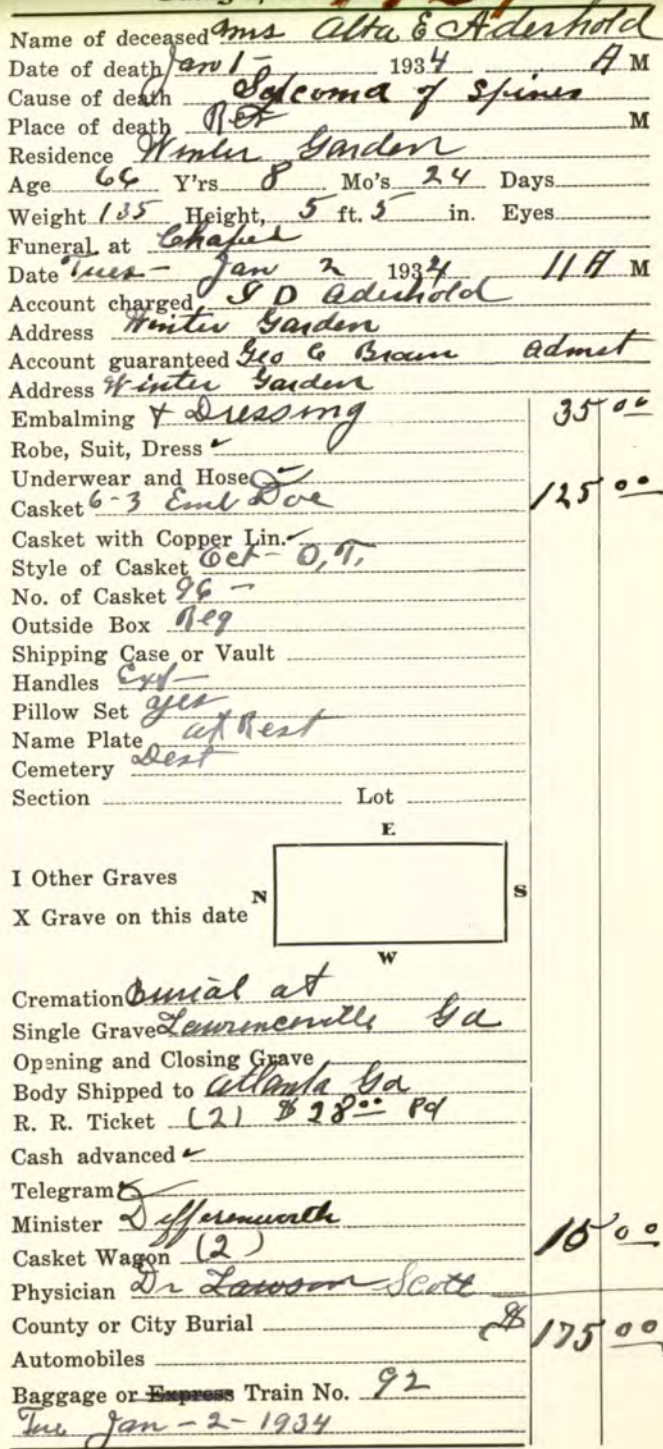 Name of deceased Mrs Alta E Aderhold
Date of death Jan 1 - 1934 A M
Cause of death of Spines
Place of death M
Residence Winter Garden
Age 66 Y'rs 8 Mo's 24 Days
Weight 135 Height, 5 ft. 5 in. Eyes
Funeral at Chapel
Date Tues - Jan 2 1934 11 A M
Account charged D Aderhold
Address Winter Garden
Account guaranteed Geo C Brown Admst
Address Winter Garden
Embalming & Dressing 35 00
Robe, Suit, Dress ✓
Underwear and Hose ✓
Casket 6-3 Emb Doe 125 00
Casket with Copper Lin. ✓
Style of Casket Oct - O, T,
No. of Casket 96 -
Outside Box Reg
Shipping Case or Vault
Handles Ext -
Pillow Set yes
Name Plate at Rest
Cemetery
Section Lot
E
I Other Graves
N S
X Grave on this date
W
Cremation Burial at
Single Grave Lawrenceville Ga
Opening and Closing Grave
Body Shipped to Atlanta Ga
R. R. Ticket (2) $ 28 00 Pd
Cash advanced ✓
Telegram
Minister
Casket Wagon (2) 15 00
Physician Dr Lawson Scott
County or City Burial $ 175 00
Automobiles
Baggage or Express Train No. 92
Tue Jan - 2 - 1934